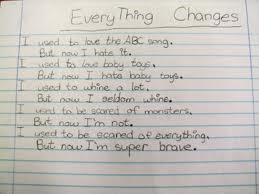 EveryThing Changes
I used to love the ABC song.
But now I hate it.
I used to love baby toys.
But now I hate baby toys.
I used to whine a lot.
But now I seldom whine.
I used to be scared of monsters.
But now I'm not.
I used to be scared of everything.
But now I'm super brave.